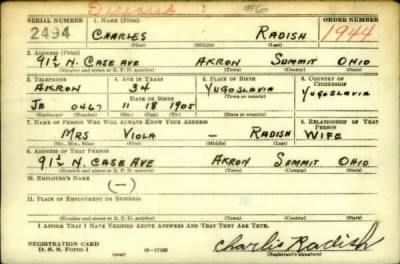 Deceased #6
SERIAL NUMBER 1. NAME (Print) ORDER NUMBER
2494 CHARLES RADISH 1944
(First) (Middle) (Last)
2. ADDRESS (Print)
91½ N. CASE AVE AKRON SUMMIT OHIO
(Number and street or R. F. D. number) (Town) (County) (State)
3. TELEPHONE 4. AGE IN YEARS 5. PLACE OF BIRTH 6. COUNTRY OF CITIZENSHIP
AKRON 34 YUGOSLAVIA YUGOSLAVIA
DATE OF BIRTH
JE 0467 11 18 1905
(Exchange) (No.) (Mo.) (Day) (Yr.) (State or country)
7. NAME OF PERSON WHO WILL ALWAYS KNOW YOUR ADDRESS 8. RELATIONSHIP OF THAT PERSON
MRS VIOLA – RADISH WIFE
(Mr., Mrs., Miss) (First) (Middle) (Last)
9. ADDRESS OF THAT PERSON
91½ N. CASE AVE AKRON SUMMIT OHIO
(Number and street or R. F. D. number) (Town) (County) (State)
10. EMPLOYER'S NAME
(–)
11. PLACE OF EMPLOYMENT OR BUSINESS
(Number and street or R. F. D. number) (Town) (County) (State)
I AFFIRM THAT I HAVE VERIFIED ABOVE ANSWERS AND THAT THEY ARE TRUE.
REGISTRATION CARD
D. S. S. Form 1 Charlie Radish
(Registrant's signature)